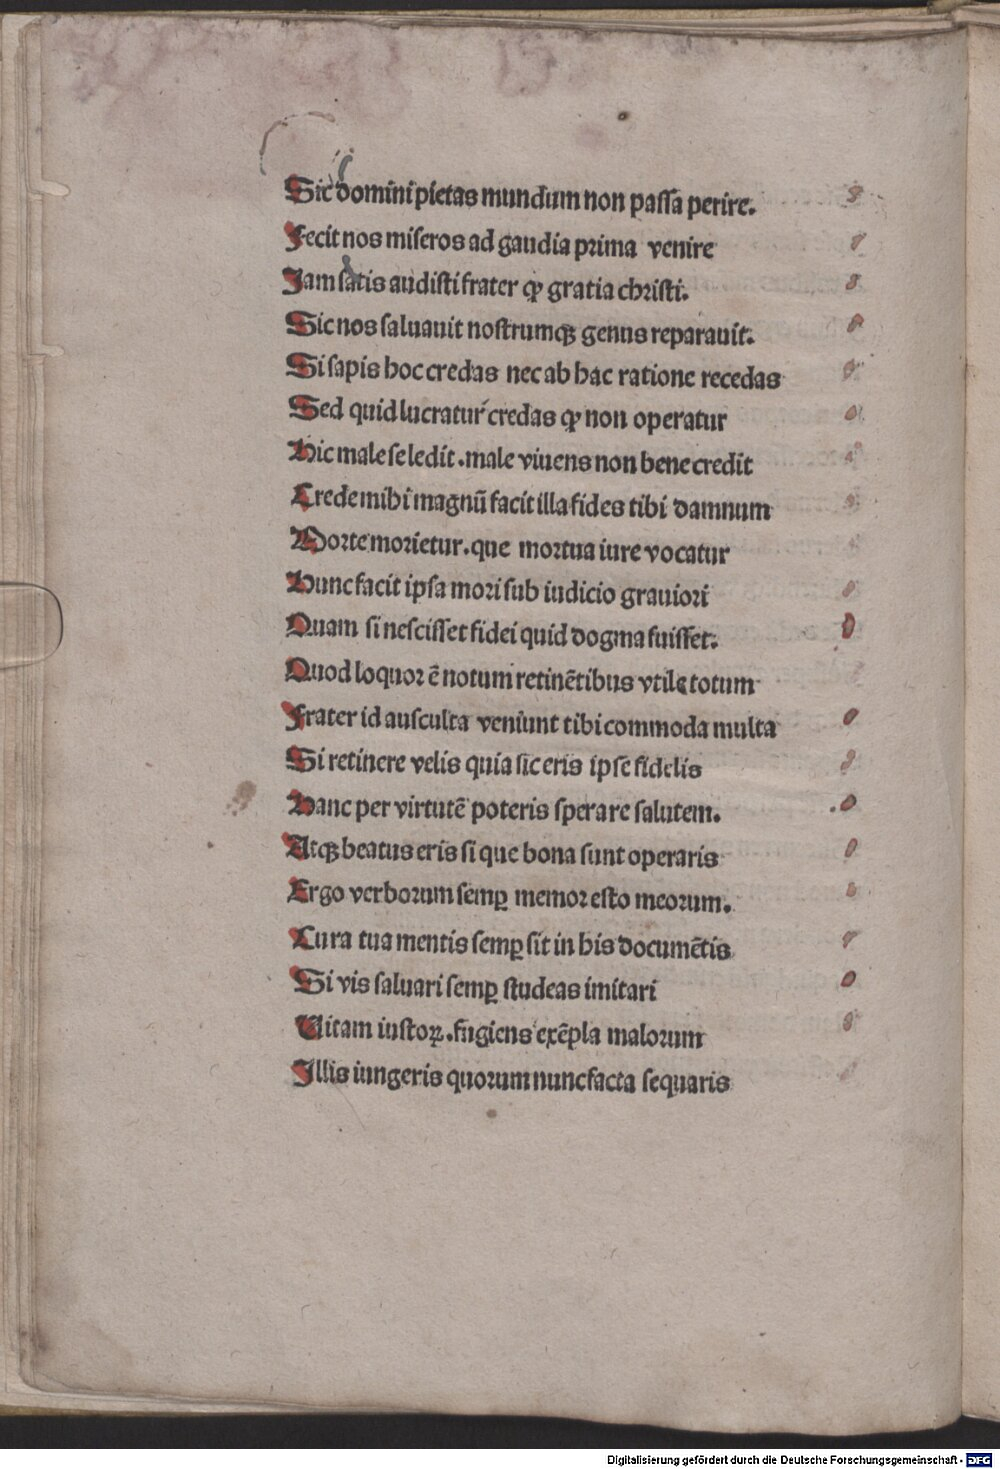 Sic domini pietas mundum non paſſa perire.
Fecit nos miſeros ad gaudia prima venire
Jam ſatis audiſti frater ꝙ gratia chriſti.
Sic nos ſaluauit noſtrumqꝫ genus reparauit.
Si ſapis hoc credas nec ab hac ratione recedas
Sed quid lucratur credas ꝙ non operatur
Hic male ſe ledit .male viuens non bene credit
Crede mihi magnū facit illa fides tibi damnum
Morte morietur .que mortua iure vocatur
Hunc facit ipſa mori ſub iudicio grauiori
Quam ſi neſciſſet fidei quid dogma fuiſſet.
Quod loquor ē notum retinētibus vtile totum
Frater id auſculta veniunt tibi commoda multa
Si retinere velis quia ſic eris ipſe fidelis
Hanc per virtutē poteris ſperare ſalutem.
Atqꝫ beatus eris ſi que bona ſunt operaris
Ergo verborum ſemꝑ memor eſto meorum.
Cura tua mentis ſemꝑ ſit in his documētis
Si vis ſaluari ſemꝑ ſtudeas imitari
Uitam iuſtoꝝ .fugiens exēpla malorum
Illis iungeris quorum nunc facta ſequaris
Digitalisierung gefördert durch die Deutsche Forschungsgemeinschaft - DFG